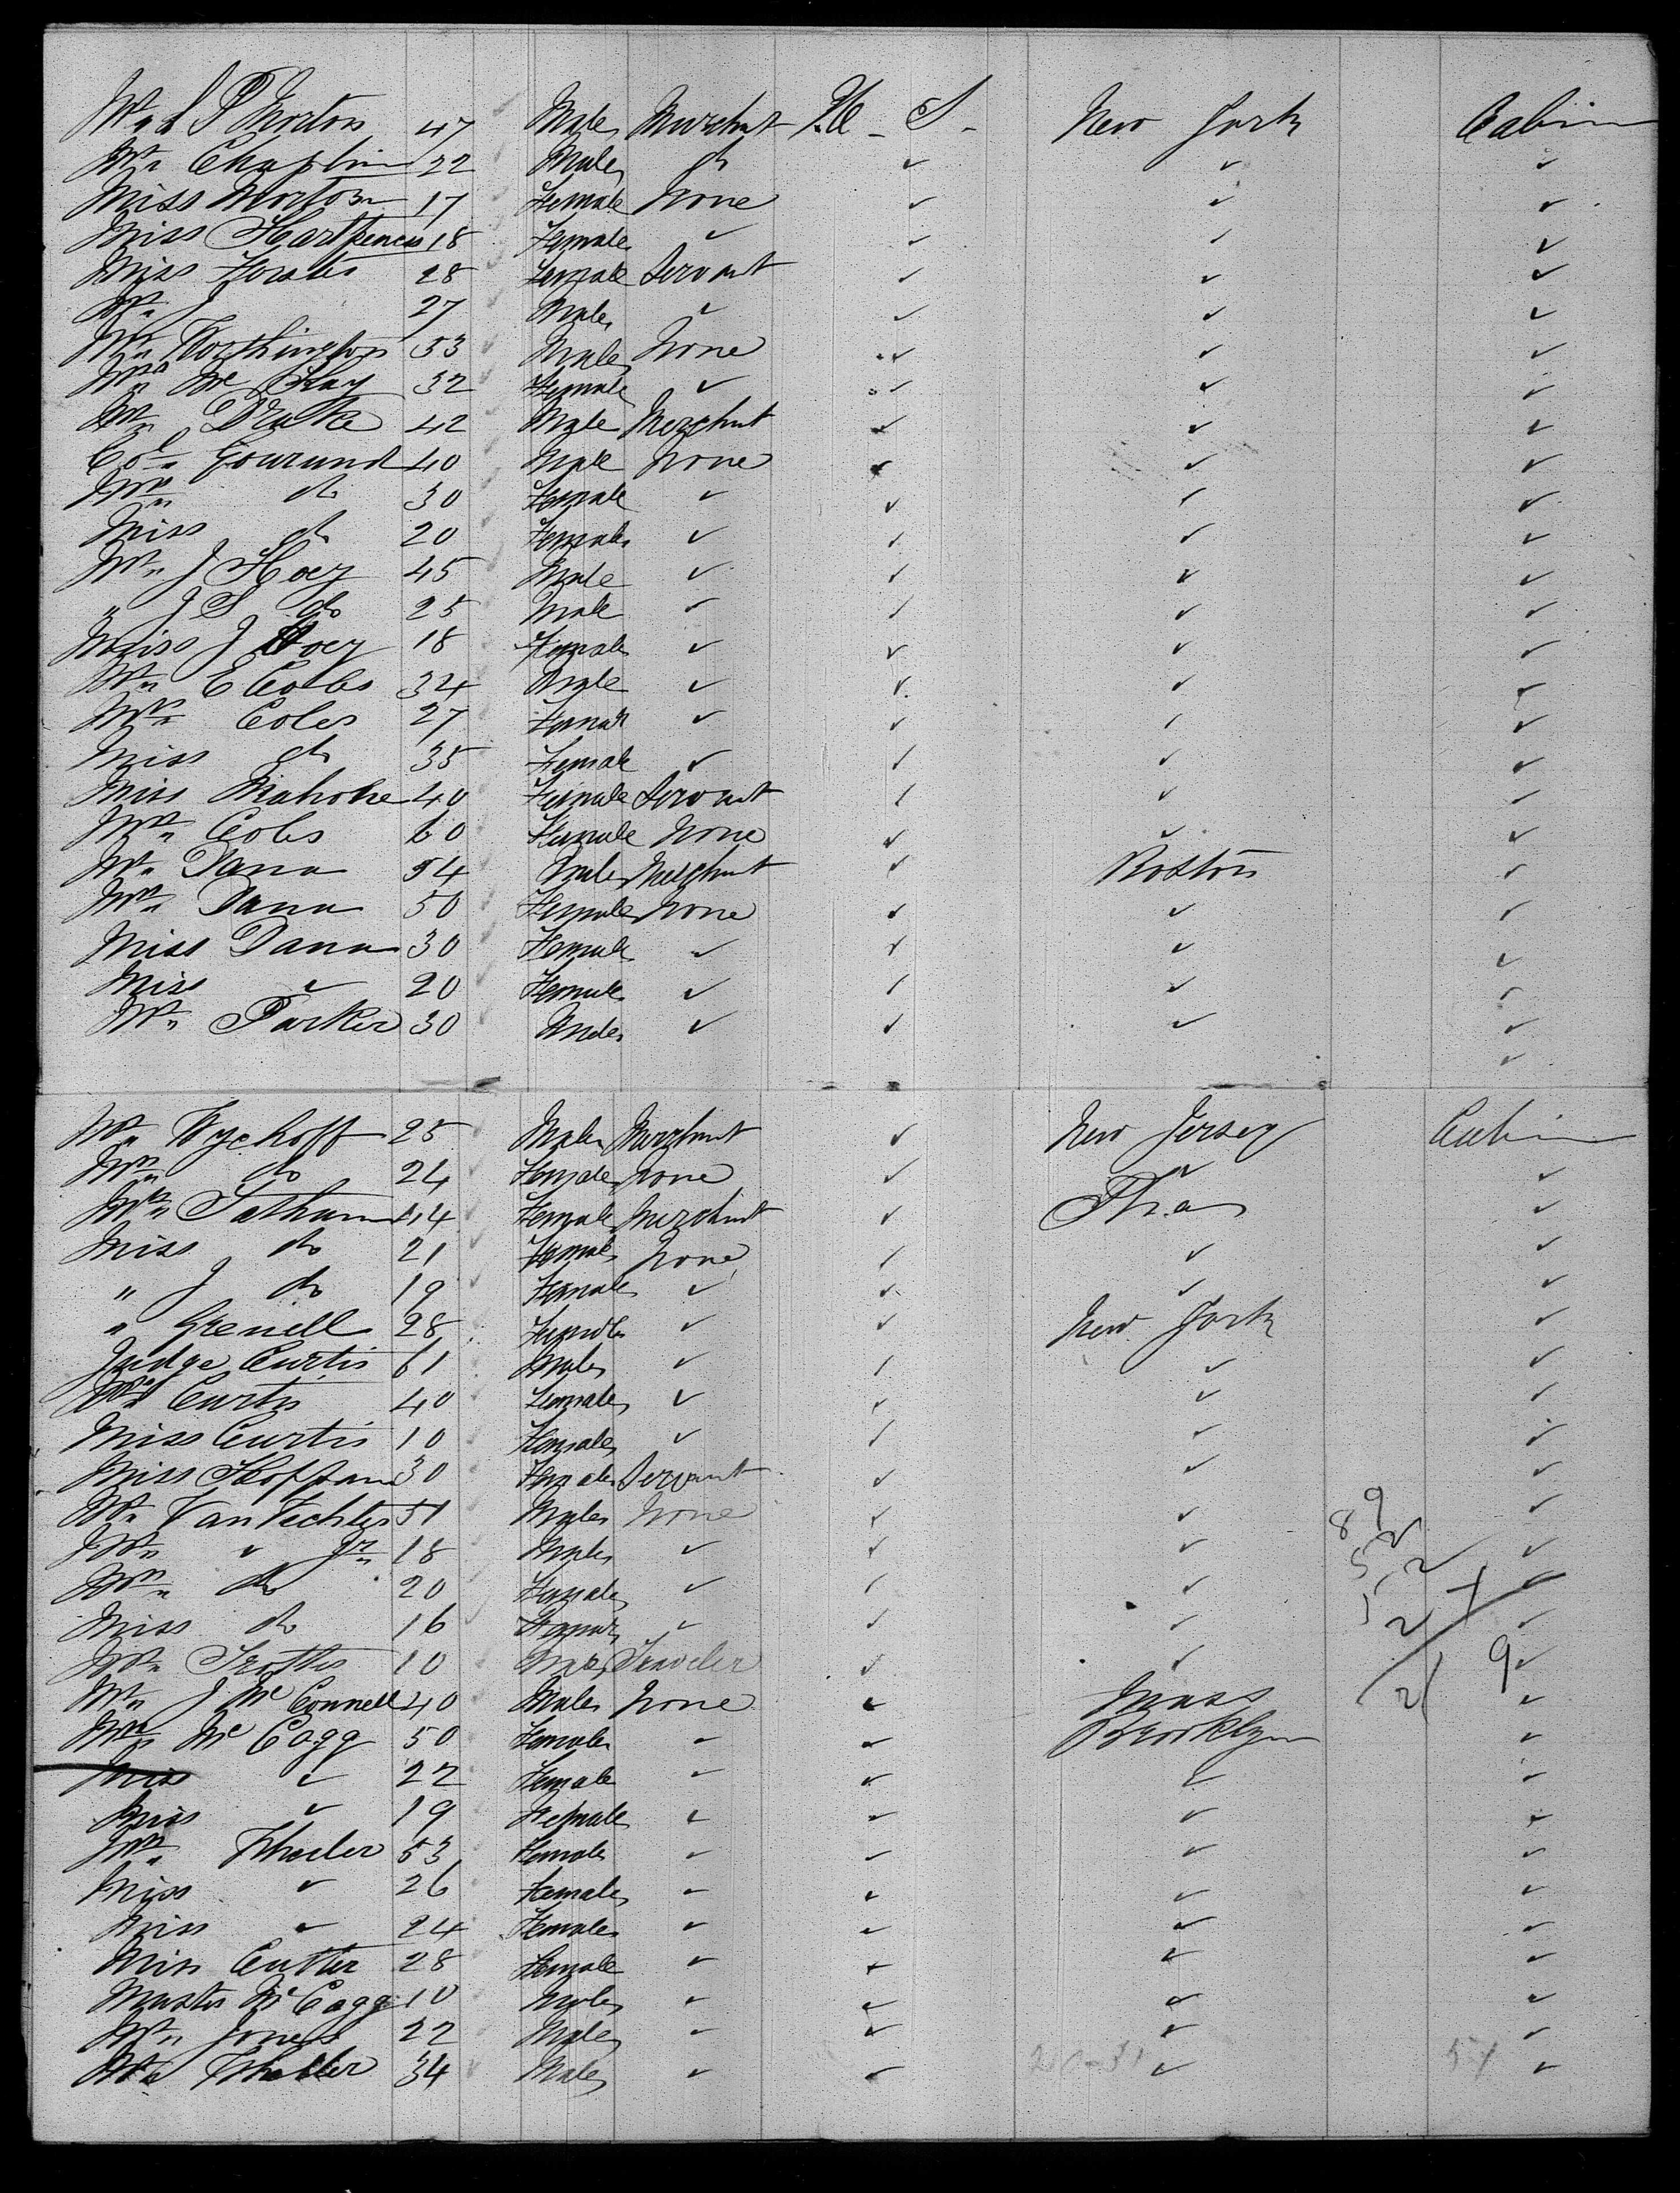 Mr L P Morton 47 Male Merchant U - S - New York Cabin
Mr Chaplin 22 Male do ✓ ✓ ✓
Miss Morton 17 Female None ✓ ✓ ✓
Miss 18 Female ✓ ✓ ✓ ✓
Miss 28 Female Servant ✓ ✓ ✓
Mr J 27 Male ✓ ✓ ✓ ✓
Mr Worthington 53 Male None ✓ ✓ ✓
Mrs Mc Kay 32 Female ✓ ✓ ✓ ✓
Mr Drake 42 Male Merchant ✓ ✓ ✓
Col Gouraud 40 Male None ✓ ✓ ✓
Mrs do 30 Female ✓ ✓ ✓ ✓
Miss do 20 Female ✓ ✓ ✓ ✓
Mr J Hoey 45 Male ✓ ✓ ✓ ✓
" J S do 25 Male ✓ ✓ ✓ ✓
Miss J Hoey 18 Female ✓ ✓ ✓ ✓
Mr E Coles 34 Male ✓ ✓ ✓ ✓
Mrs Coles 27 Female ✓ ✓ ✓ ✓
Miss do 35 Female ✓ ✓ ✓ ✓
Miss Mahone 40 Female Servant ✓ ✓ ✓
Mrs Coles 60 Female None ✓ ✓ ✓
Mr Dana 54 Male Merchant ✓ Boston ✓
Mrs Dana 50 Female None ✓ ✓ ✓
Miss Dana 30 Female ✓ ✓ ✓ ✓
Miss ✓ 20 Female ✓ ✓ ✓ ✓
Mr Parker 30 Male ✓ ✓ ✓ ✓
✓
Mr Wyckoff 25 Male Merchant ✓ New Jersey Cabin
Mrs do 24 Female None ✓ ✓ ✓
Mrs Tatham 44 Female Merchant ✓ Phia ✓
Miss do 21 Female None ✓ ✓ ✓
" J do 19 Female ✓ ✓ ✓ ✓
" Grenell 28 Female ✓ ✓ New York ✓
Judge Curtis 61 Male ✓ ✓ ✓ ✓
Mrs Curtis 40 Female ✓ ✓ ✓ ✓
Miss Curtis 10 Female ✓ ✓ ✓ ✓
Miss Hoffman 30 Female Servant ✓ ✓ ✓
Mr Van Vechten 51 Male None ✓ ✓ 89 ✓
Mr ✓ Jr 18 Male ✓ ✓ ✓ 52 ✓
Mrs do 20 Female ✓ ✓ ✓ ✓
Miss do 16 Female ✓ ✓ ✓ 52 ✓
Mr Trotter 10 Male Traveler ✓ ✓ 9 ✓
Mr J Mc Connell 40 Male None ✓ Mass 21 ✓
Mrs Mc Cagg 50 Female ✓ ✓ Brooklyn ✓
Miss ✓ 22 Female ✓ ✓ ✓ ✓
Miss ✓ 19 Female ✓ ✓ ✓ ✓
Mrs Wheeler 53 Female ✓ ✓ ✓ ✓
Miss ✓ 26 Female ✓ ✓ ✓ ✓
Miss ✓ 24 Female ✓ ✓ ✓ ✓
Miss Cutter 28 Female ✓ ✓ ✓ ✓
Master Mc Cagg 10 Male ✓ ✓ ✓ ✓
Mr Jones 22 Male ✓ ✓ ✓ ✓
Mr Wheeler 34 Male ✓ ✓ ✓ ✓